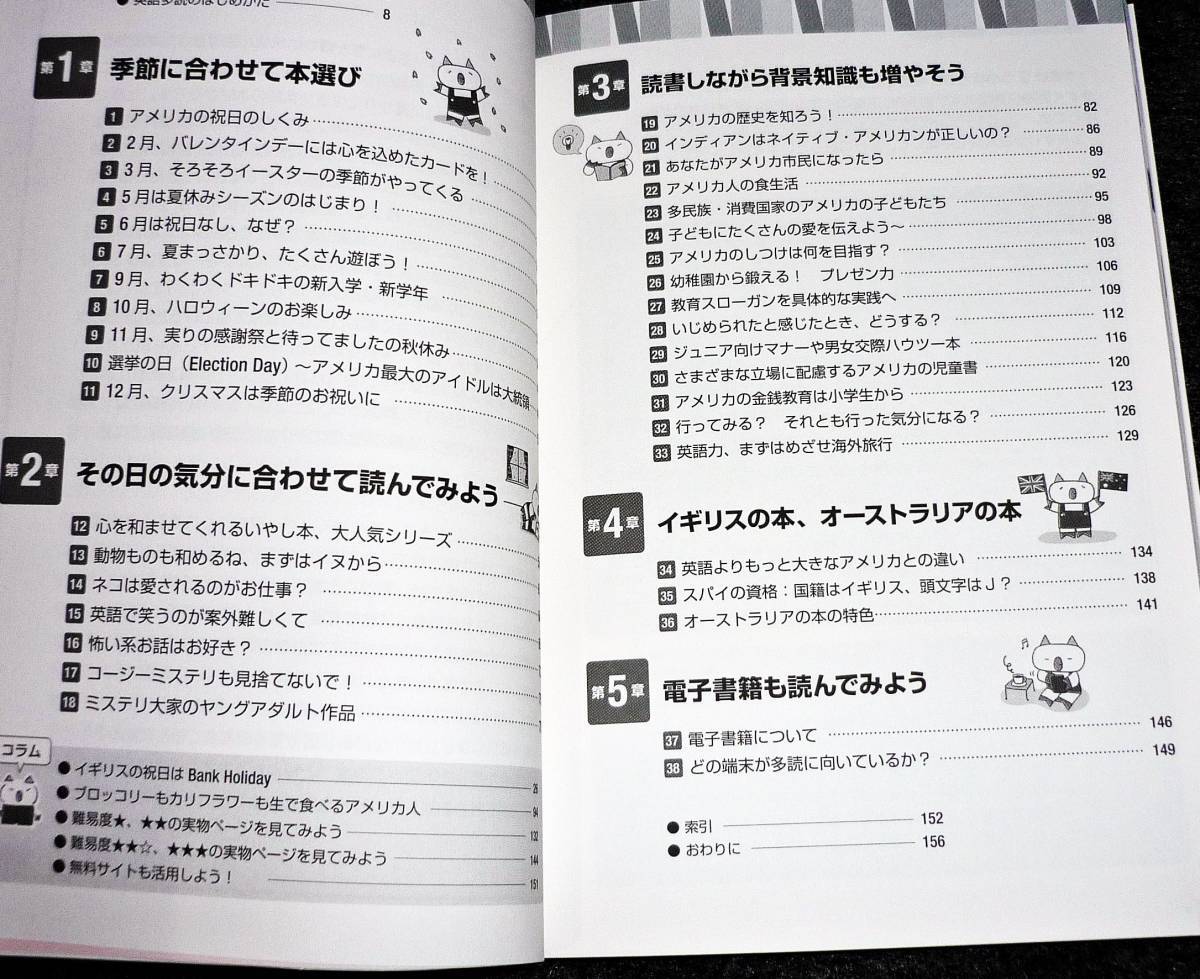 ● 英語多読のはじめかた 8
第1章 季節に合わせて本選び
1 アメリカの祝日のしくみ
2 2月、バレンタインデーには心を込めたカードを！
3 3月、そろそろイースターの季節がやってくる
4 5月は夏休みシーズンのはじまり！
5 6月は祝日なし、なぜ？
6 7月、夏まっさかり、たくさん遊ぼう！
7 9月、わくわくドキドキの新入学・新学年
8 10月、ハロウィーンのお楽しみ
9 11月、実りの感謝祭と待ってましたの秋休み
10 選挙の日（Election Day）～アメリカ最大のアイドルは大統領
11 12月、クリスマスは季節のお祝いに
第2章 その日の気分に合わせて読んでみよう
12 心を和ませてくれるいやし本、大人気シリーズ
13 動物ものも和めるね、まずはイヌから
14 ネコは愛されるのがお仕事？
15 英語で笑うのが案外難しくて
16 怖い系お話はお好き？
17 コージーミステリも見捨てないで！
18 ミステリ大家のヤングアダルト作品
コラム
● イギリスの祝日は Bank Holiday 26
● ブロッコリーもカリフラワーも生で食べるアメリカ人 94
● 難易度★、★★の実物ページを見てみよう 132
● 難易度★★☆、★★★の実物ページを見てみよう 144
● 無料サイトも活用しよう！ 151
第3章 読書しながら背景知識も増やそう
19 アメリカの歴史を知ろう！ 82
20 インディアンはネイティブ・アメリカンが正しいの？ 86
21 あなたがアメリカ市民になったら 89
22 アメリカ人の食生活 92
23 多民族・消費国家のアメリカの子どもたち 95
24 子どもにたくさんの愛を伝えよう～ 98
25 アメリカのしつけは何を目指す？ 103
26 幼稚園から鍛える！　プレゼン力 106
27 教育スローガンを具体的な実践へ 109
28 いじめられたと感じたとき、どうする？ 112
29 ジュニア向けマナーや男女交際ハウツー本 116
30 さまざまな立場に配慮するアメリカの児童書 120
31 アメリカの金銭教育は小学生から 123
32 行ってみる？　それとも行った気分になる？ 126
33 英語力、まずはめざせ海外旅行 129
第4章 イギリスの本、オーストラリアの本
34 英語よりもっと大きなアメリカとの違い 134
35 スパイの資格：国籍はイギリス、頭文字はJ？ 138
36 オーストラリアの本の特色 141
第5章 電子書籍も読んでみよう
37 電子書籍について 146
38 どの端末が多読に向いているか？ 149
● 索引 152
● おわりに 156